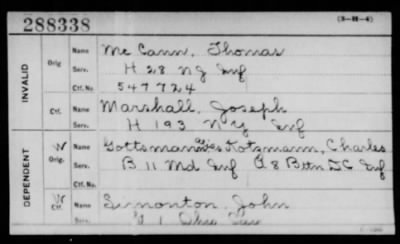 288338
(3-H-4)
INVALID
Orig
Name Mc Cann, Thomas
Serv. H 28 NJ Inf
Ctf. No. 547724
Ctf.
Name Marshall, Joseph
Serv. H 193 N Y Inf
DEPENDENT
W
Orig.
Name Gottsman Kotzmann, Charles
Serv. B 11 Md Inf A 8 Battn DC Inf
Ctf. No.
W
Ctf.
Name Simonton, John
Serv. 1 Ohio